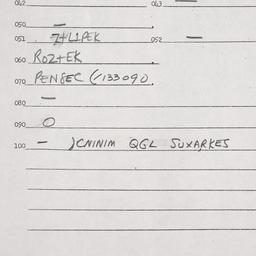 042 043 —
050 —
051 052 —
060 ROZTEK
070 PENSEC (/133090.
080 —
090 O
100 — QGL SUXARKES